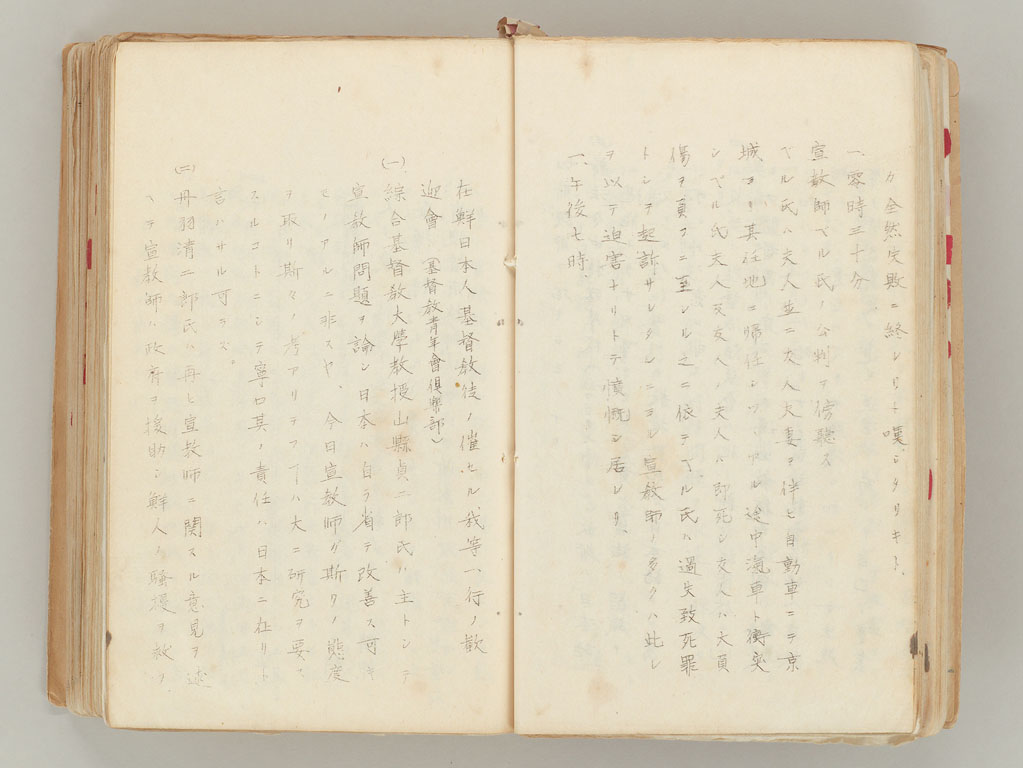 カ全然失敗ニ終レリト嘆シタリキト、
一、零時三十分
宣教師ベル氏ノ公判ヲ傍聴ス
ベル氏ハ夫人並ニ友人夫妻ヲ伴ヒ自動車ニテ京
城ヨリ其任地ニ帰任シツヽアル途中汽車ト衝突
シベル氏夫人及友人ノ夫人ハ即死シ友人ハ大負
傷ヲ負フニ至レル之ニ依テベル氏ハ過失致死罪
トシテ起訴サレタルニヨル宣教師ノ多クハ此レ
ヲ以テ迫害ナリトテ憤慨シ居レリ、
一、午後七時、
在鮮日本人基督教徒ノ催セル我等一行ノ歓
迎會(基督教青年會倶楽部)
(一)綜合基督教大學教授山縣貞二郎氏ハ主トシテ
宣教師問題ヲ論シ日本ハ自ラ省テ改善ス可キ
モノアルニ非スヤ、今日宣教師ガ斯クノ態度
ヲ取リ斯々ノ考アリテフ ハ大ニ研究ヲ要
スルコトニシテ寧ロ其ノ責任ハ日本ニ在リト
言ハサル可ラズ。
(二)丹羽清二郎氏ハ再ヒ宣教師ニ関スル意見ヲ述
ヘテ宣教師ハ政府ヲ援助シ鮮人ノ騒擾ヲ救フ